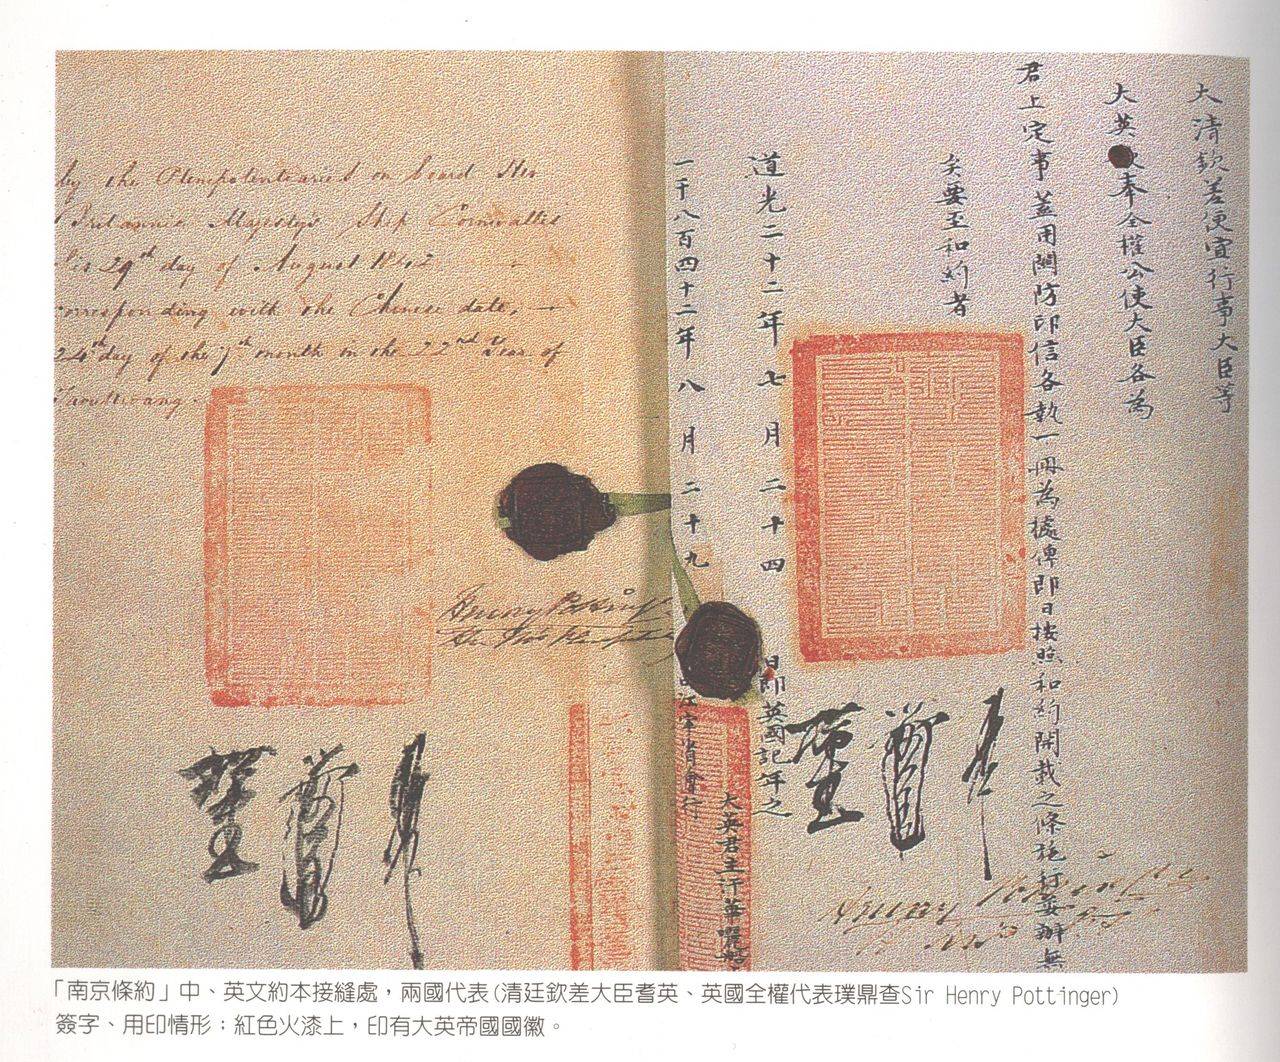 by the Plenipotentiaries on board Her
Britannic Majesty's Ship Cornwallis
this 29th day of August 1842
corresponding with the Chinese date, —
24th day of the 7th month in the 22nd Year of
Taoukwang.
Henry Pottinger
大清欽差便宜行事大臣等
大英欽奉全權公使大臣各為
君上定事蓋用關防印信各執一冊為據俾即日按照和約開載之條施行妥辦無
矣要至和約者
道光二十二年七月二十四日即英國記年之
一千八百四十二年八月二十九日由江寧省會行
大英君主汗華囇船
Henry Pottinger
「南京條約」中、英文約本接縫處，兩國代表(清廷欽差大臣耆英、英國全權代表璞鼎查Sir Henry Pottinger)
簽字、用印情形；紅色火漆上，印有大英帝國國徽。